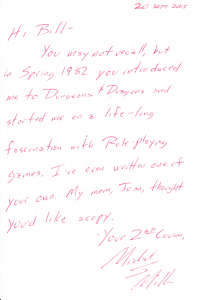 20 SEPT 2015
Hi, Bill-
You may not recall, but
in Spring 1982 you introduced
me to Dungeons & Dragons and
started me on a life-long
fascination with Role-playing
games. I've even written one of
your own. My mom, Joan, thought
you'd like a copy.
-Your 2nd Cousin,
Michael
S
Mill